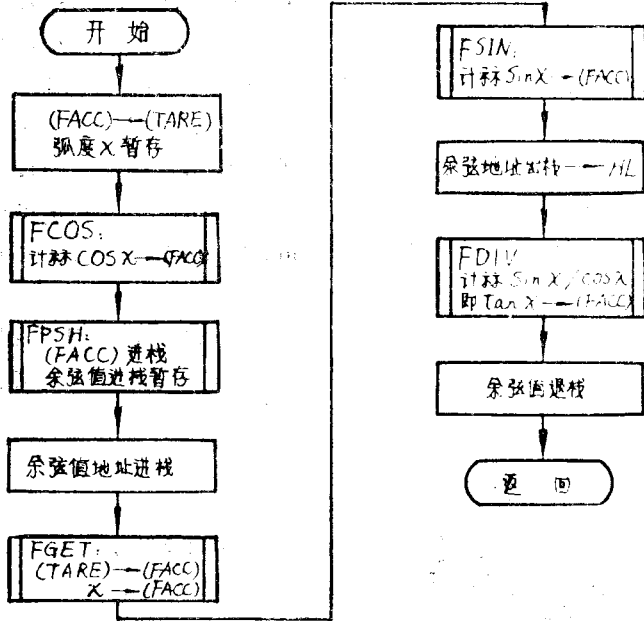 开 始
(FACC)→(TARE)
弧度X暂存
FCOS:
计标COSX→(FACC)
FPSH:
(FACC)进栈
余弦值进栈暂存
余弦值地址进栈
FGET:
(TARE)→(FACC)
X→(FACC)
FSIN:
计标SinX→(FACC)
余弦地址出栈→HL
FDIV
计标SinX/COSX
即TanX→(FACC)
余弦值退栈
返 回